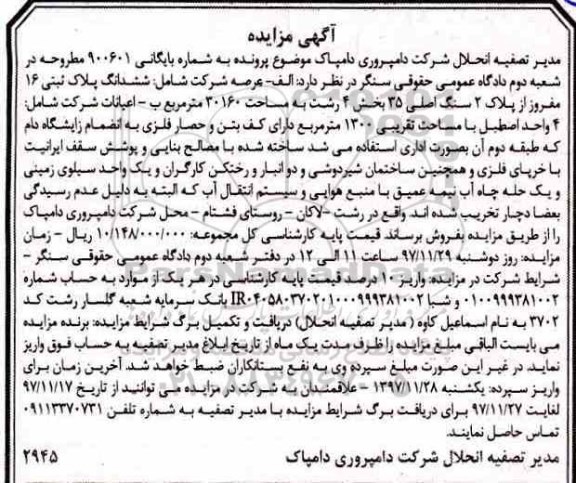 آگهی مزایده
مدیر تصفیه انحلال شرکت دامپروری دامپاک موضوع پرونده به شماره بایگانی ۹۰۰۶۰۱ مطروحه در
شعبه دوم دادگاه عمومی حقوقی سنگر در نظر دارد: الف- عرصه شرکت شامل: ششدانگ پلاک ثبتی ۱۶
مفروز از پلاک ۲ سنگ اصلی ۳۵ بخش ۴ رشت به مساحت ۳۰۱۶۰ مترمربع ب - اعیانات شرکت شامل:
۴ واحد اصطبل با مساحت تقریبی ۱۳۰۰ مترمربع دارای کف بتن و حصار فلزی به انضمام زایشگاه دام
که طبقه دوم آن بصورت اداری استفاده می شد ساخته شده با مصالح بنایی و پوشش سقف ایرانیت
با خرپای فلزی و همچنین ساختمان شیردوشی و دو انبار و رختکن کارگران و یک واحد سیلوی زمینی
و یک حله چاه آب نیمه عمیق با منبع هوایی و سیستم انتقال آب که البته به دلیل عدم رسیدگی
بعضا دچار تخریب شده اند واقع در رشت -لاکان - روستای فشتام - محل شرکت دامپروری دامپاک
را از طریق مزایده بفروش برساند. قیمت پایه کارشناسی کل مجموعه: ۱۰/۱۴۸/۰۰۰/۰۰۰ ریال - زمان
مزایده: روز دوشنبه ۹۷/۱۱/۲۹ ساعت ۱۱ الی ۱۲ در دفتر شعبه دوم دادگاه عمومی حقوقی سنگر -
شرایط شرکت در مزایده: واریز ۱۰ درصد قیمت پایه کارشناسی در هر یک از موارد به حساب شماره
۰۱۰۰۹۹۹۳۸۱۰۰۲ و شبا IR۰۴۰۵۸۰۳۷۰۲۰۱۰۰۰۹۹۹۳۸۱۰۰۲ بانک سرمایه شعبه گلسار رشت کد
۳۷۰۲ به نام اسماعیل کاوه (مدیر تصفیه انحلال) دریافت و تکمیل برگ شرایط مزایده: برنده مزایده
می بایست الباقی مبلغ مزایده را ظرف مدت یک ماه از تاریخ ابلاغ مدیر تصفیه به حساب فوق واریز
نماید. در غیر این صورت مبلغ سپرده وی به نفع بستانکاران ضبط خواهد شد. آخرین زمان برای
واریز سپرده: یکشنبه ۱۳۹۷/۱۱/۲۸ - علاقمندان به شرکت در مزایده می توانید از تاریخ ۹۷/۱۱/۱۷
لغایت ۹۷/۱۱/۲۷ برای دریافت برگ شرایط مزایده با مدیر تصفیه به شماره تلفن ۰۹۱۱۳۳۷۰۷۳۱
تماس حاصل نمایند.
مدیر تصفیه انحلال شرکت دامپروری دامپاک ۲۹۴۵